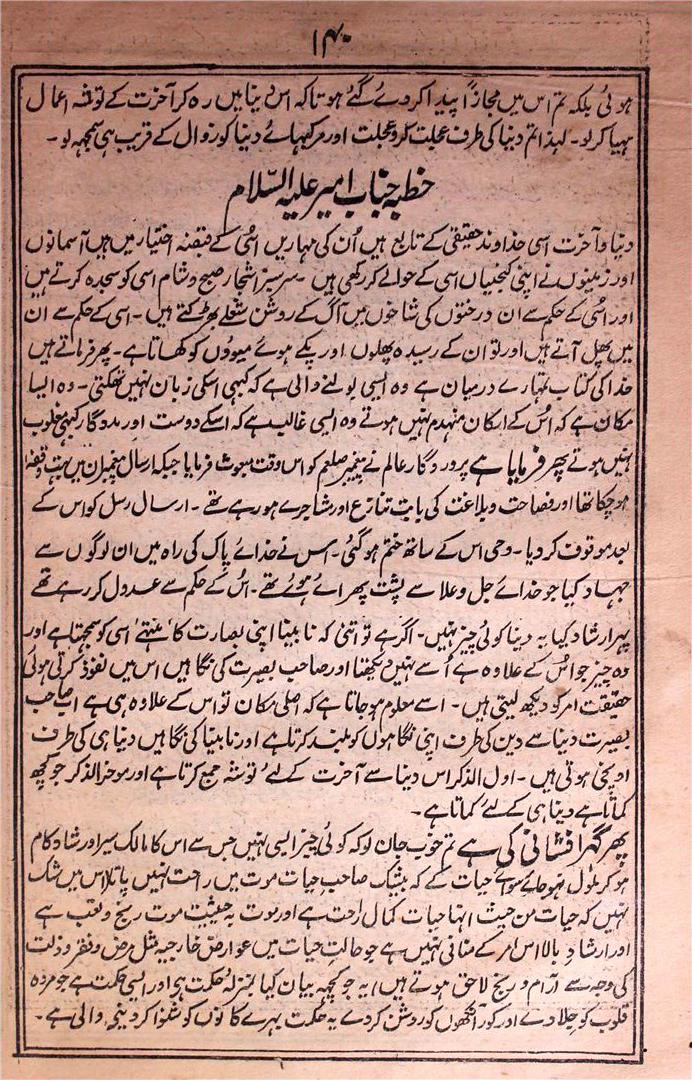 ۱۴۰
ہوئی بلکہ تم اس میں مجازاً پیدا کر دئے گئے ہو تاکہ اس دنیا میں رہ کر آخرت کے توشۂ اعمال
مہیا کر لو۔ لہٰذا تم دنیا کی طرف عجلت کرو عجلت اور مرکبہائے دنیا کو زوال کے قریب ہی سمجھ لو۔
خطبہ جناب امیر علیہ السّلام
دنیا و آخرت اسی خداوند حقیقی کے تابع ہیں اُن کی مہاریں اُسی کے قبضۂ اختیار میں ہیں آسمانوں
اور زمینوں نے اپنی کنجیاں اسی کے حوالے کر رکھی ہیں۔ سرسبز اشجار صبح و شام اسی کو سجدہ کرتے ہیں
اور اُسی کے حکم سے ان درختوں کی شاخوں میں آگ کے روشن شعلے بھڑکتے ہیں۔ اسی کے حکم سے ان
میں پھل آتے ہیں اور تو ان کے رسیدہ پھلوں اور پکے ہوئے میووں کو کھاتا ہے۔ پھر فرماتے ہیں
خدا کی کتاب تمہارے درمیان ہے وہ ایسی بولنے والی ہے کہ کبھی اسکی زبان نہیں تھکتی۔ وہ ایسا
مکان ہے کہ اُس کے ارکان منہدم نہیں ہوتے وہ ایسی غالب ہے کہ اسکے دوست اور مددگار کبھی مغلوب
نہیں ہوتے پھر فرمایا ہے پروردگار عالم نے پیغمبر صلعم کو اس وقت مبعوث فرمایا جبکہ ارسال پیغمبران میں بہت وقفہ
ہو چکا تھا اور فصاحت و بلاغت کی بابت تنازع اور مشاجرے ہو رہے تھے۔ ارسال رسل کو اس کے
بعد موقوف کر دیا۔ وحی اس کے ساتھ ختم ہو گئی۔ اس نے خدائے پاک کی راہ میں ان لوگوں سے
جہاد کیا جو خدائے جل و علا سے پشت پھرائے ہوئے تھے۔ اُس کے حکم سے عدول کر رہے تھے
پھر ارشاد کیا یہ دنیا کوئی چیز نہیں۔ اگر ہے تو اتنی کہ نابینا اپنی بصارت کا منتہے اسی کو سمجھتا ہے اور
وہ چیز جو اُس کے علاوہ ہے اُسے نہیں دیکھتا اور صاحب بصیرت کی نگاہیں اس میں نفوذ کرتی ہوئی
حقیقت امر کو دیکھ لیتی ہیں۔ اسے معلوم ہو جاتا ہے کہ اصلی مکان تو اس کے علاوہ ہی ہے اب صاحب
بصیرت دنیا سے دین کی طرف اپنی نگاہوں کو بلند کرتا ہے اور نابینا کی نگاہیں دنیا ہی کی طرف
اونچی ہوتی ہیں۔ اول الذکر اس دنیا سے آخرت کے لئے توشہ جمع کرتا ہے اور موخر الذکر جو کچھ
کماتا ہے دنیا ہی کے لئے کماتا ہے۔
پھر گہر افشانی کی ہے تم خوب جان لو کہ کوئی چیز ایسی نہیں جس سے اس کا مالک سیر اور شاد کام
ہو کر ملول نہو جائے سوائے حیات کے کہ بیشک صاحب حیات موت میں راحت نہیں پاتا اس میں شک
نہیں کہ حیات من حیث انہا حیات کمال راحت ہے اور موت بہ حیثیت موت رنج و تعب ہے
اور ارشاد بالا اس امر کے منافی نہیں ہے جو حالت حیات میں عوارض خارجیہ مثل مرض و فقر و ذلت
کی وجہ سے آرام و رنج لاحق ہوتے ہیں یہ جو کچھ بیان کیا بمنزلہ حکمت ہے اور ایسی حکمت ہے جو مردہ
قلوب کو جلا دے اور کور آنکھوں کو روشن کر دے یہ حکمت بہرے کانوں کو شنوا کر دینے والی ہے۔